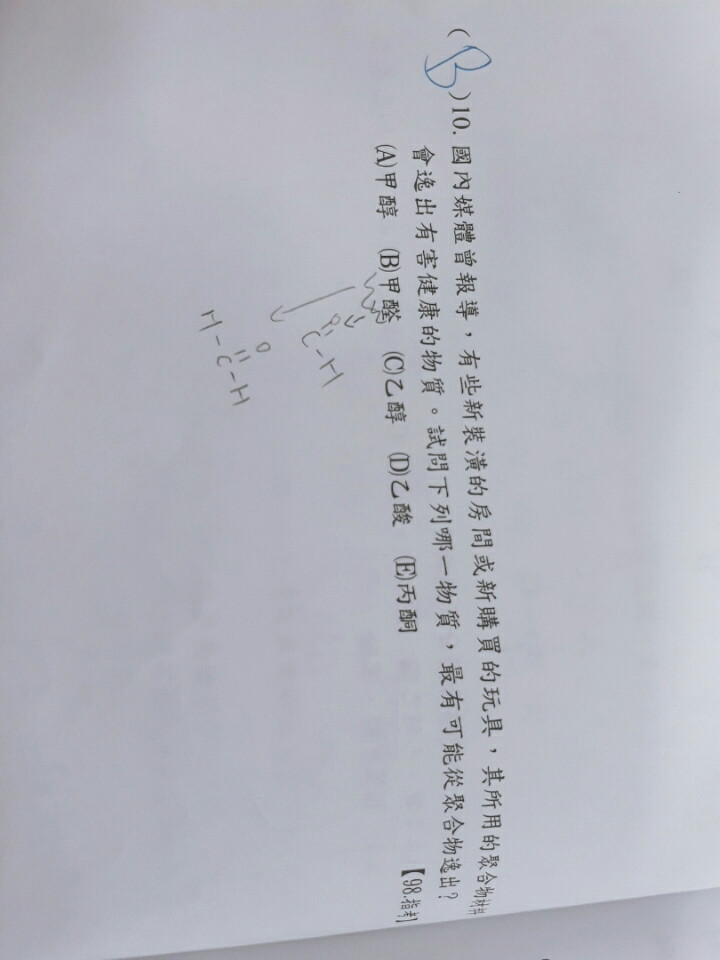 (B)10. 國內媒體曾報導，有些新裝潢的房間或新購買的玩具，其所用的聚合物材料
會逸出有害健康的物質。試問下列哪一物質，最有可能從聚合物逸出？
(A)甲醇 (B)甲醛 (C)乙醇 (D)乙酸 (E)丙酮
【98.指考】
O
C-H
O
H-C-H